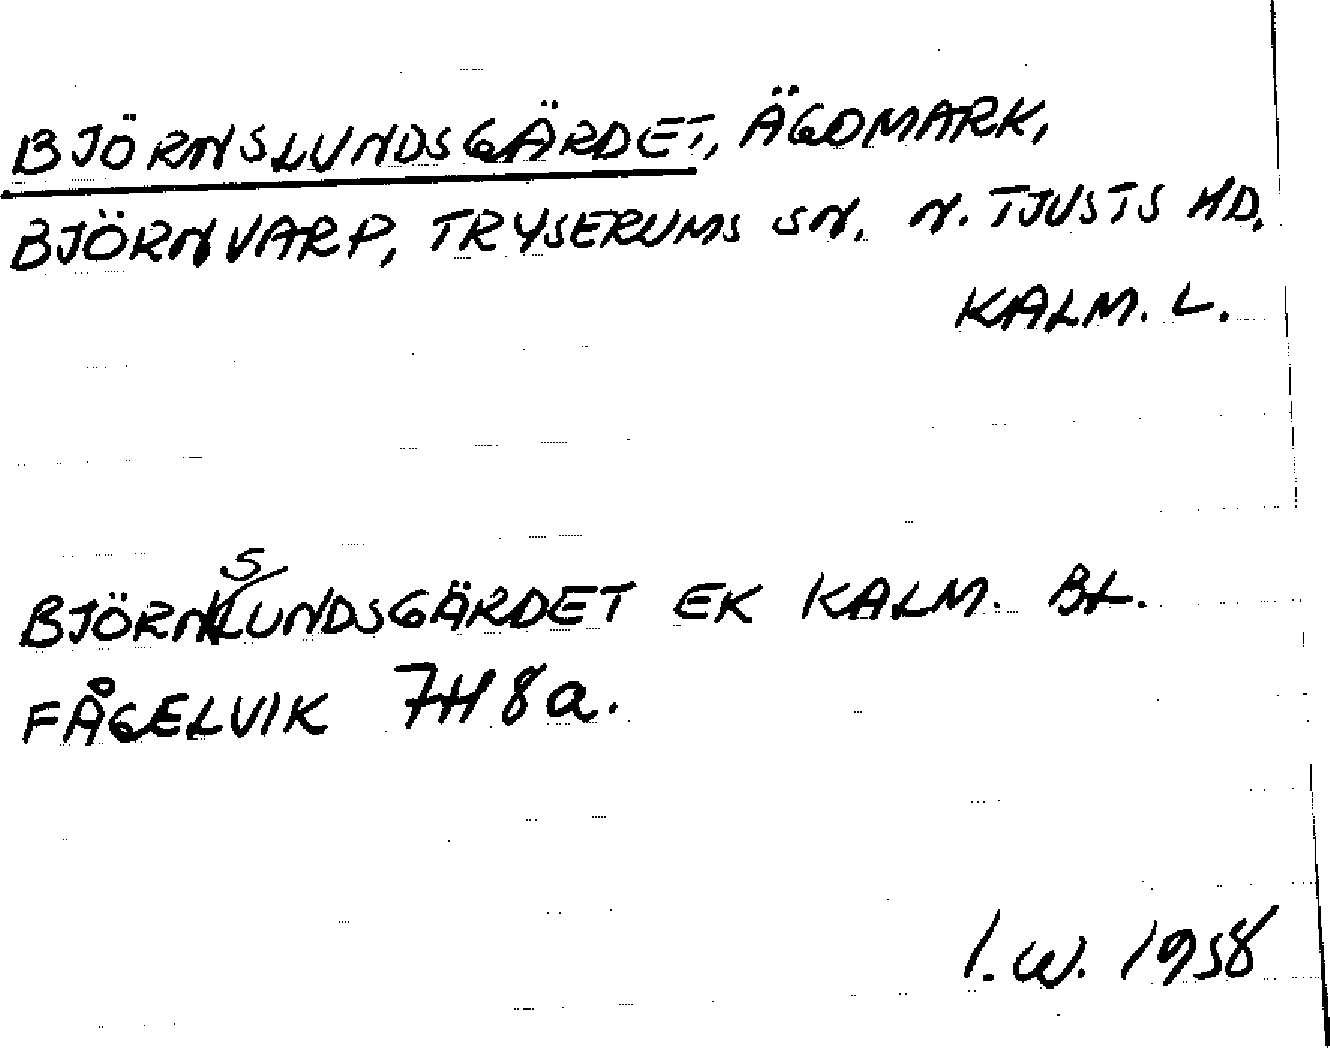 BJÖRNSLUNDSGÄRDET, ÄGOMARK,
BJÖRNVARP, TRYSERUMS SN. N. TJUSTS HD.
KALM. L.
BJÖRNSLUNDSGÄRDET EK KALM. BL.
FÅGELVIK 7H8a.
I.W. 1958